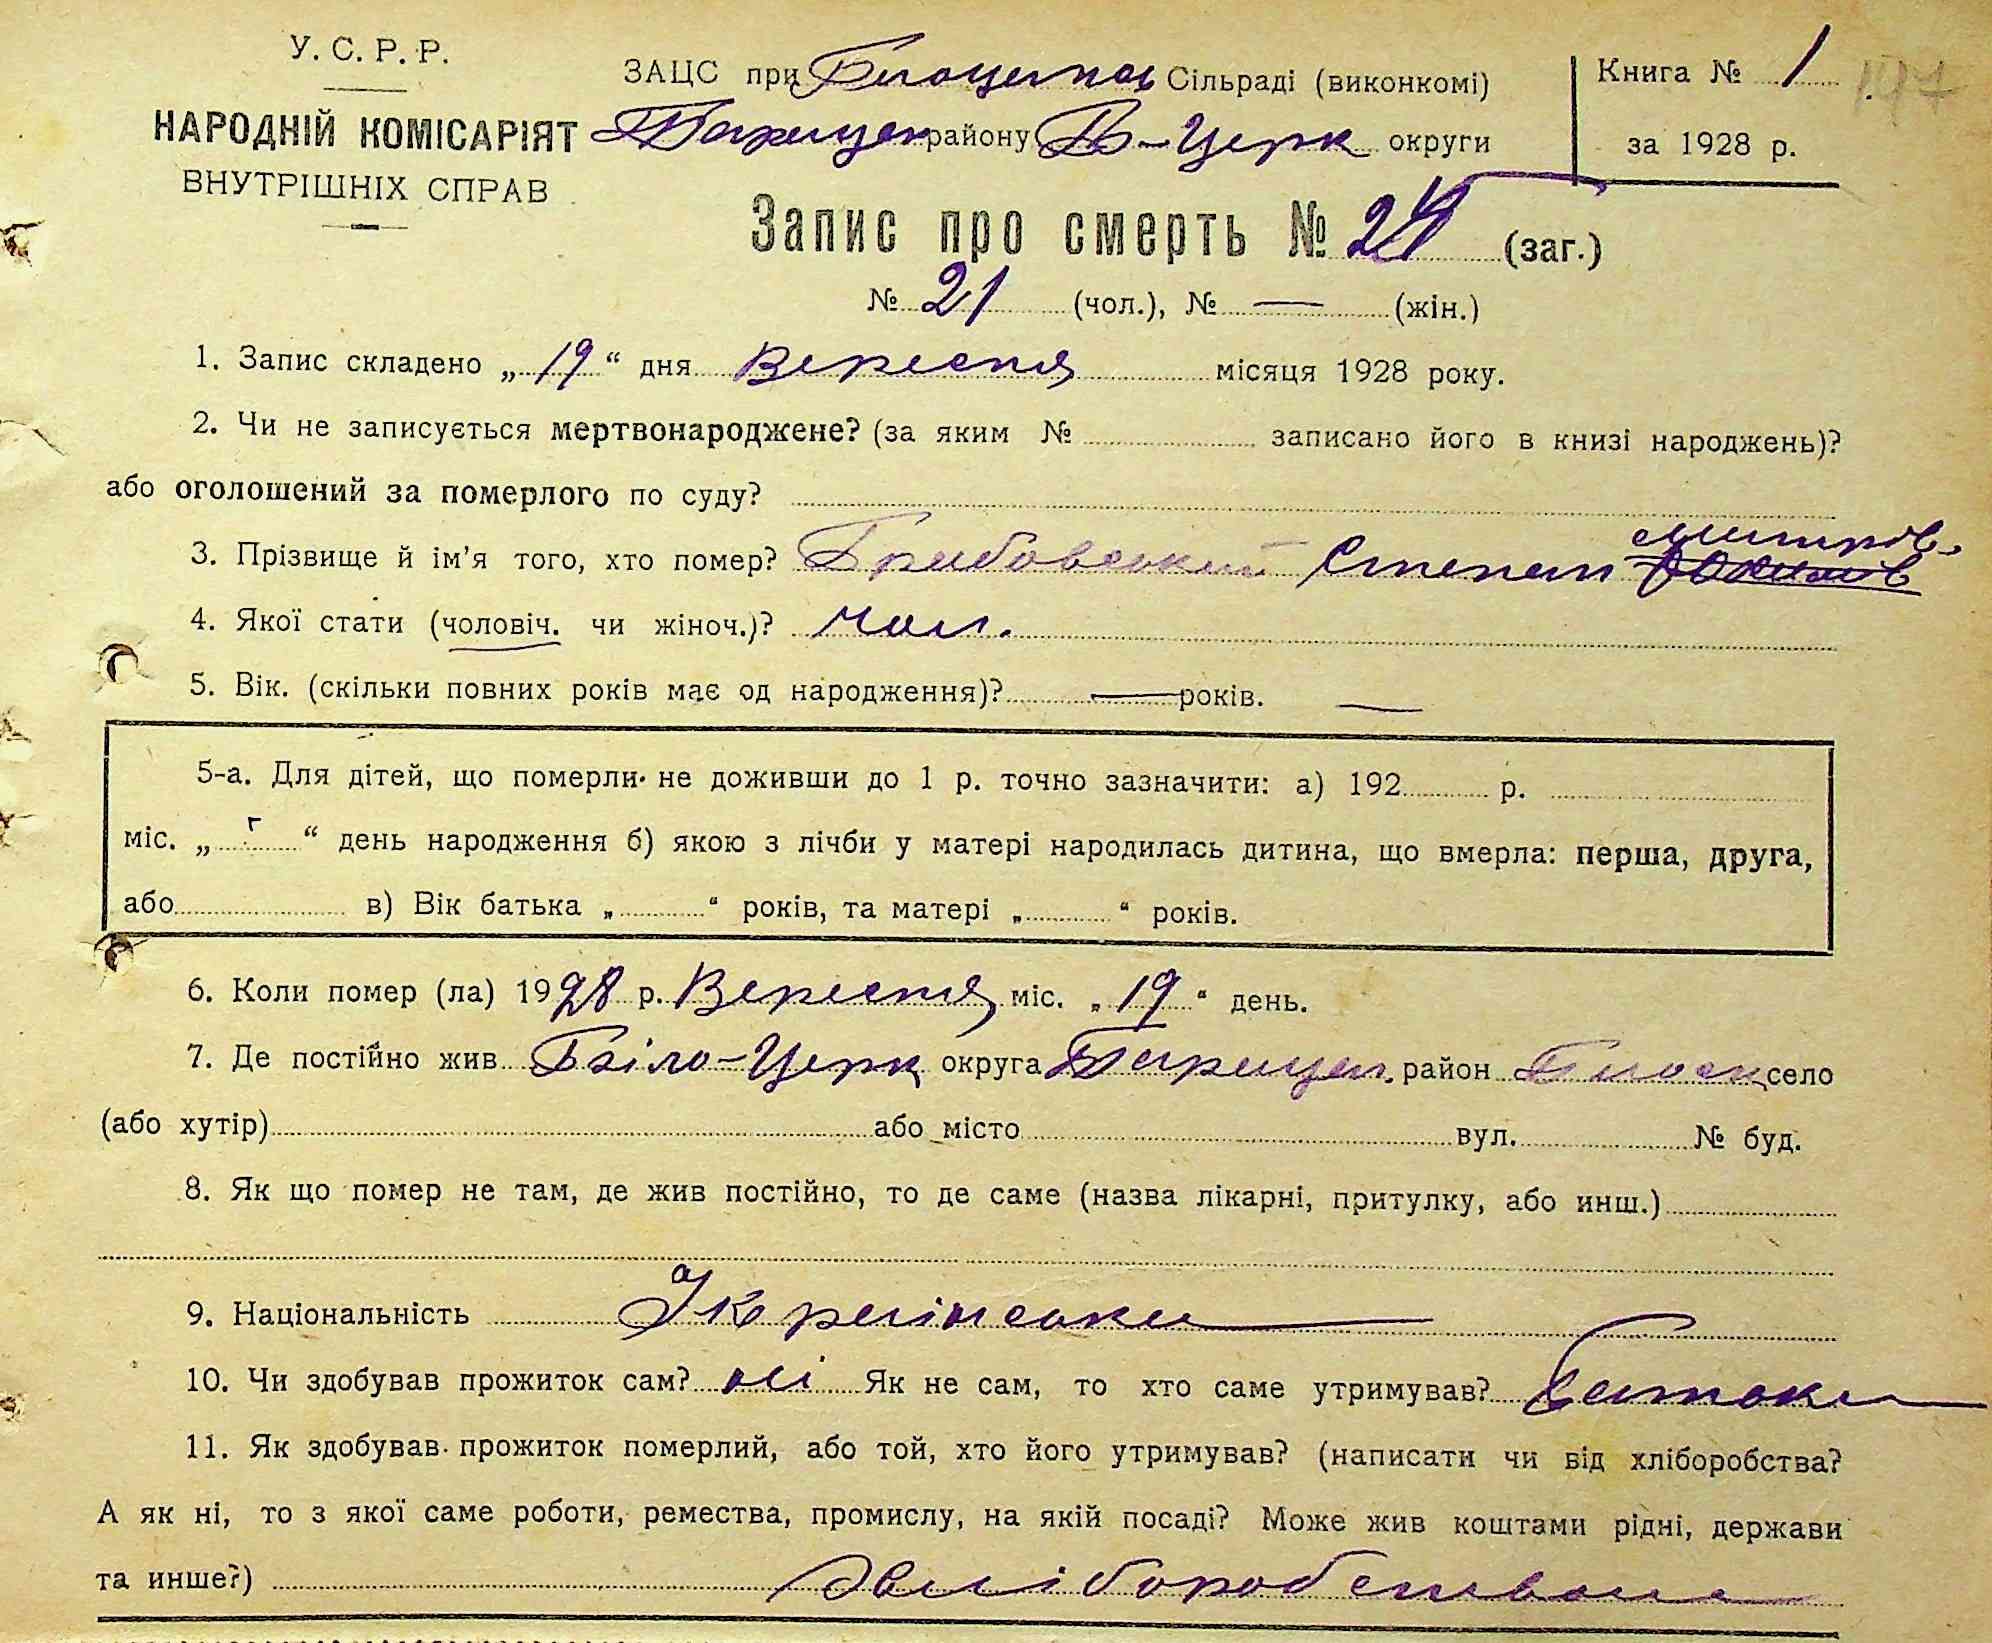 У. С. Р. Р.
НАРОДНІЙ КОМІСАРІЯТ
ВНУТРІШНІХ СПРАВ
ЗАЦС при Сільраді (виконкомі)
району Б-Церк округи
Книга № 1
за 1928 р.
147
Запис про смерть № 24 (заг.)
№ 21 (чол.), № — (жін.)
1. Запис складено „19“ дня Вересня місяця 1928 року.
2. Чи не записується мертвонароджене? (за яким № записано його в книзі народжень)?
або оголошений за померлого по суду?
3. Прізвище й ім'я того, хто помер? Грибовський Степан Дмитров.
4. Якої стати (чоловіч. чи жіноч.)? чол.
5. Вік. (скільки повних років має од народження)? — років. —
5-а. Для дітей, що померли не доживши до 1 р. точно зазначити: а) 192 р.
міс. „ “ день народження б) якою з лічби у матері народилась дитина, що вмерла: перша, друга,
або в) Вік батька „ “ років, та матері „ “ років.
6. Коли помер (ла) 1928 р. Вересня міс. „19“ день.
7. Де постійно жив Біло-Церк округа район село
(або хутір) або місто вул. № буд.
8. Як що помер не там, де жив постійно, то де саме (назва лікарні, притулку, або инш.)
9. Національність Українська
10. Чи здобував прожиток сам? ні Як не сам, то хто саме утримував? Батько
11. Як здобував прожиток померлий, або той, хто його утримував? (написати чи від хліборобства?
А як ні, то з якої саме роботи, ремества, промислу, на якій посаді? Може жив коштами рідні, держави
та инше?) хліборобством